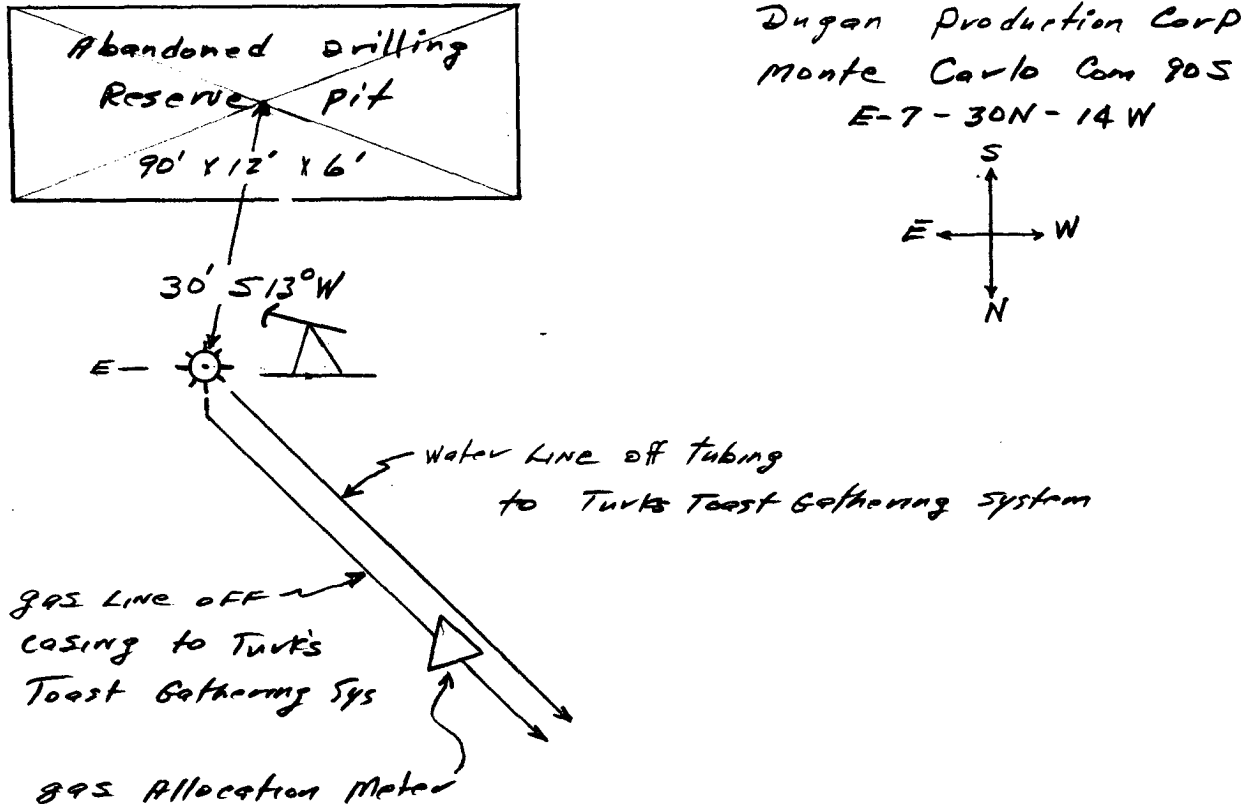 Abandoned Drilling
Reserve Pit
90' x 12' x 6'
Dugan Production Corp
Monte Carlo Com 90S
E-7-30N-14W
S
E W
N
30' S13°W
E-
Water Line off tubing
to Turks Toast Gathering System
gas Line off
casing to Turk's
Toast Gathering Sys
gas Allocation Meter